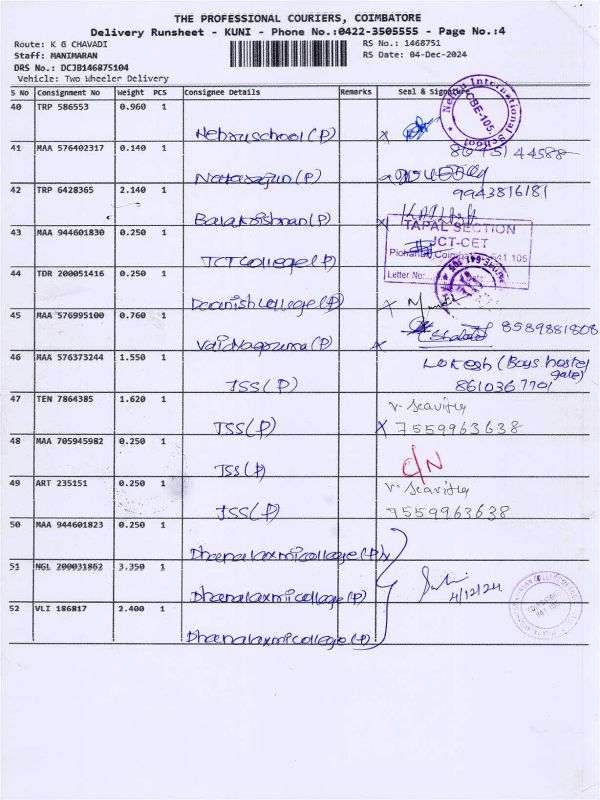 THE PROFESSIONAL COURIERS, COIMBATORE
Delivery Runsheet - KUNI - Phone No.:0422-3505555 - Page No.:4
Route: K G CHAVADI RS No.: 1468751
Staff: MANIMARAN RS Date: 04-Dec-2024
DRS No.: DCJB146875104
Vehicle: Two Wheeler Delivery
S No Consignment No Weight PCS Consignee Details Remarks Seal & Signature
40 TRP 586553 0.960 1
Nehru school (P) x
Nehru International School CBE-105
41 MAA 576402317 0.140 1 44588
Natarajun (P)
42 TRP 6428365 2.140 1 9943816181
Balakrishnan (P) x
43 MAA 944601830 0.250 1 TAPAL SECTION
JCT-CET
JCT College (P) Coimbatore 641 105
44 TDR 200051416 0.250 1 Letter No:
Daanish College (P) x
45 MAA 576995100 0.760 1 8539881808
(P) x
46 MAA 576373244 1.550 1 Lokesh (Boys hostel
gate)
JSS (P) 8610367701
47 TEN 7864385 1.620 1
JSS (P) x 7559963638
48 MAA 705945982 0.250 1 C/N
JSS (P)
49 ART 235151 0.250 1
JSS (P) 7559963638
50 MAA 944601823 0.250 1
Dhanalaxmi college (P) x
51 NGL 200031862 3.350 1
Dhanalaxmi college (P) 4/12/24
52 VLI 186817 2.400 1
Dhanalaxmi college (P)